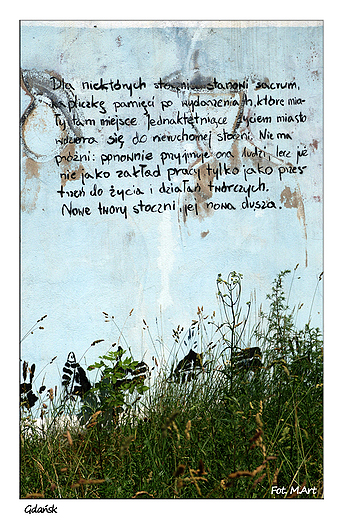 Dla niektórych stocznia stanowi sacrum,
kapliczkę pamięci po wydarzeniach, które mia-
ły tam miejsce. Jednak tętniące życiem miasto
wdziera się do nieruchomej stoczni. Nie ma
próżni: ponownie przyjmuje ona ludzi, lecz już
nie jako zakład pracy tylko jako przes-
trzeń do życia i działań twórczych.
Nowe twory stoczni, jej nowa dusza.
Fot. M.Art
Gdańsk